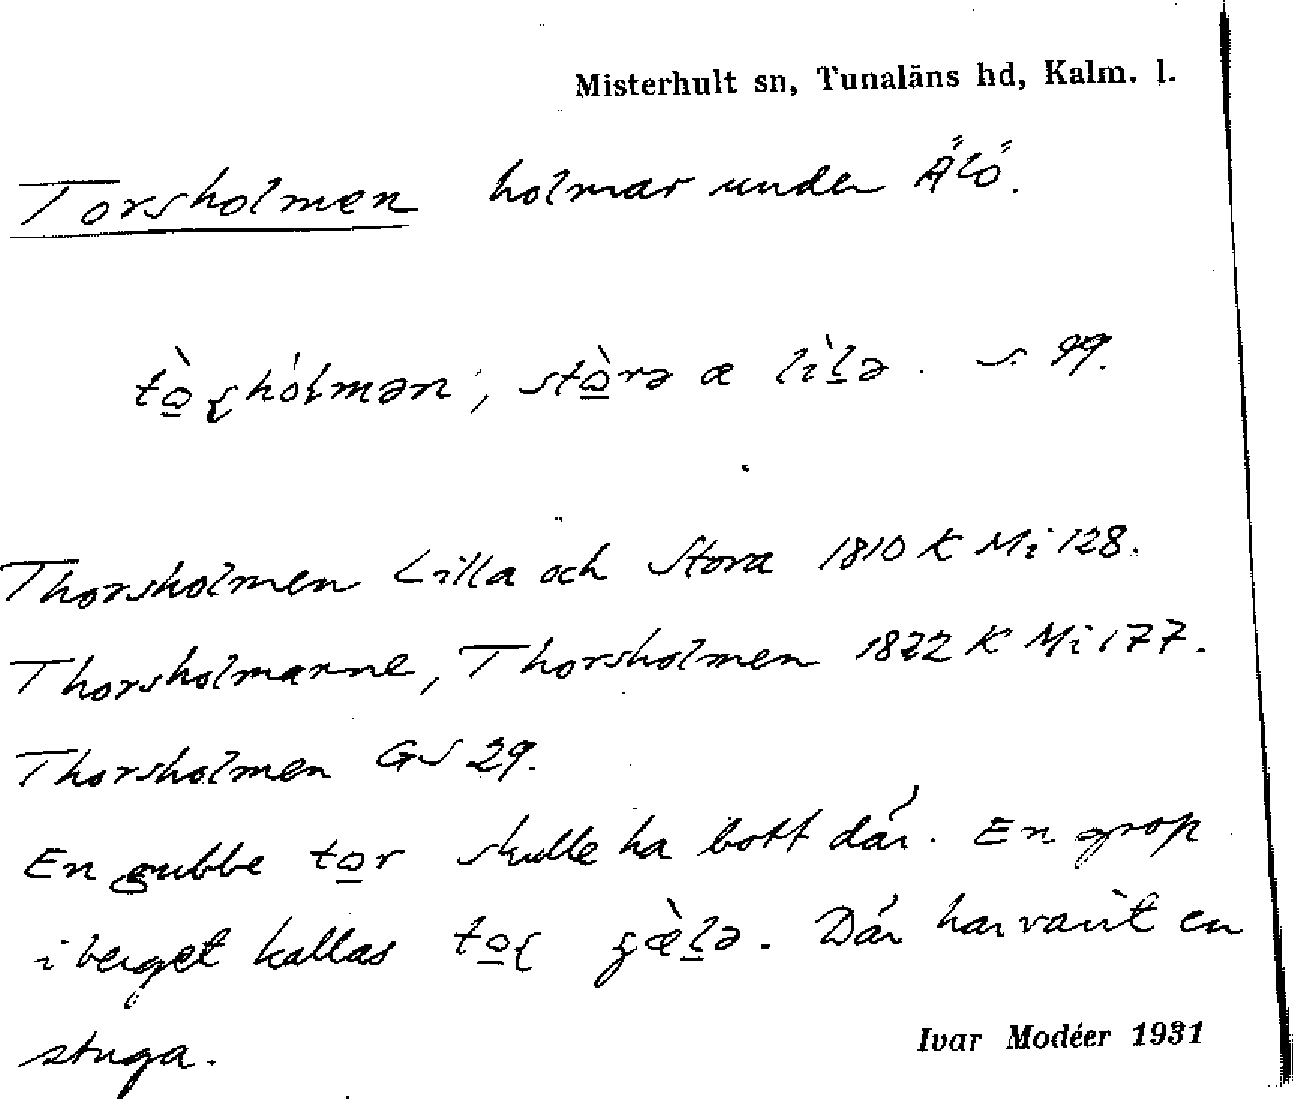 Misterhult sn, Tunaläns hd, Kalm. l.
Torsholmen holmar under Älö.
tò̱ʂhólmən, stò̱rə æ lìḻə. s 99.
Thorsholmen Lilla och Stora 1810 K Mi 128.
Thorsholmarne, Thorsholmen 1822 K Mi 177.
Thorsholmen GS 29.
En gubbe to̱r skulle ha bott där. En grop
i berget kallas to̱ʂ gæ̀ḻə. Där har varit en
stuga.
Ivar Modéer 1931